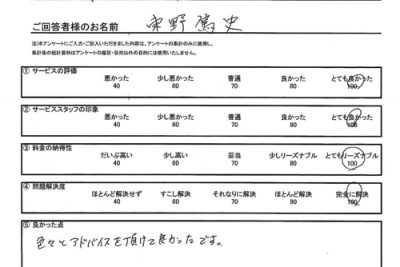 ご回答者様のお名前 東野篤史
注)本アンケートにご入力・ご記入いただきました内容は、アンケートの集計のみに使用し、
集計後の統計資料はアンケートの趣旨・目的以外の目的には使用いたしません。
① サービスの評価
悪かった 少し悪かった 普通 良かった とても良かった
40 60 70 80 100
② サービススタッフの印象
悪かった 少し悪かった 普通 良かった とても良かった
40 60 70 80 100
③ 料金の納得性
だいぶ高い 少し高い 妥当 少しリーズナブル とてもリーズナブル
40 60 70 80 100
④ 問題解決度
ほとんど解決せず すこし解決 それなりに解決 ほとんど解決 完全に解決
40 60 70 80 100
⑤ 良かった点
色々とアドバイスを頂けて良かったです。